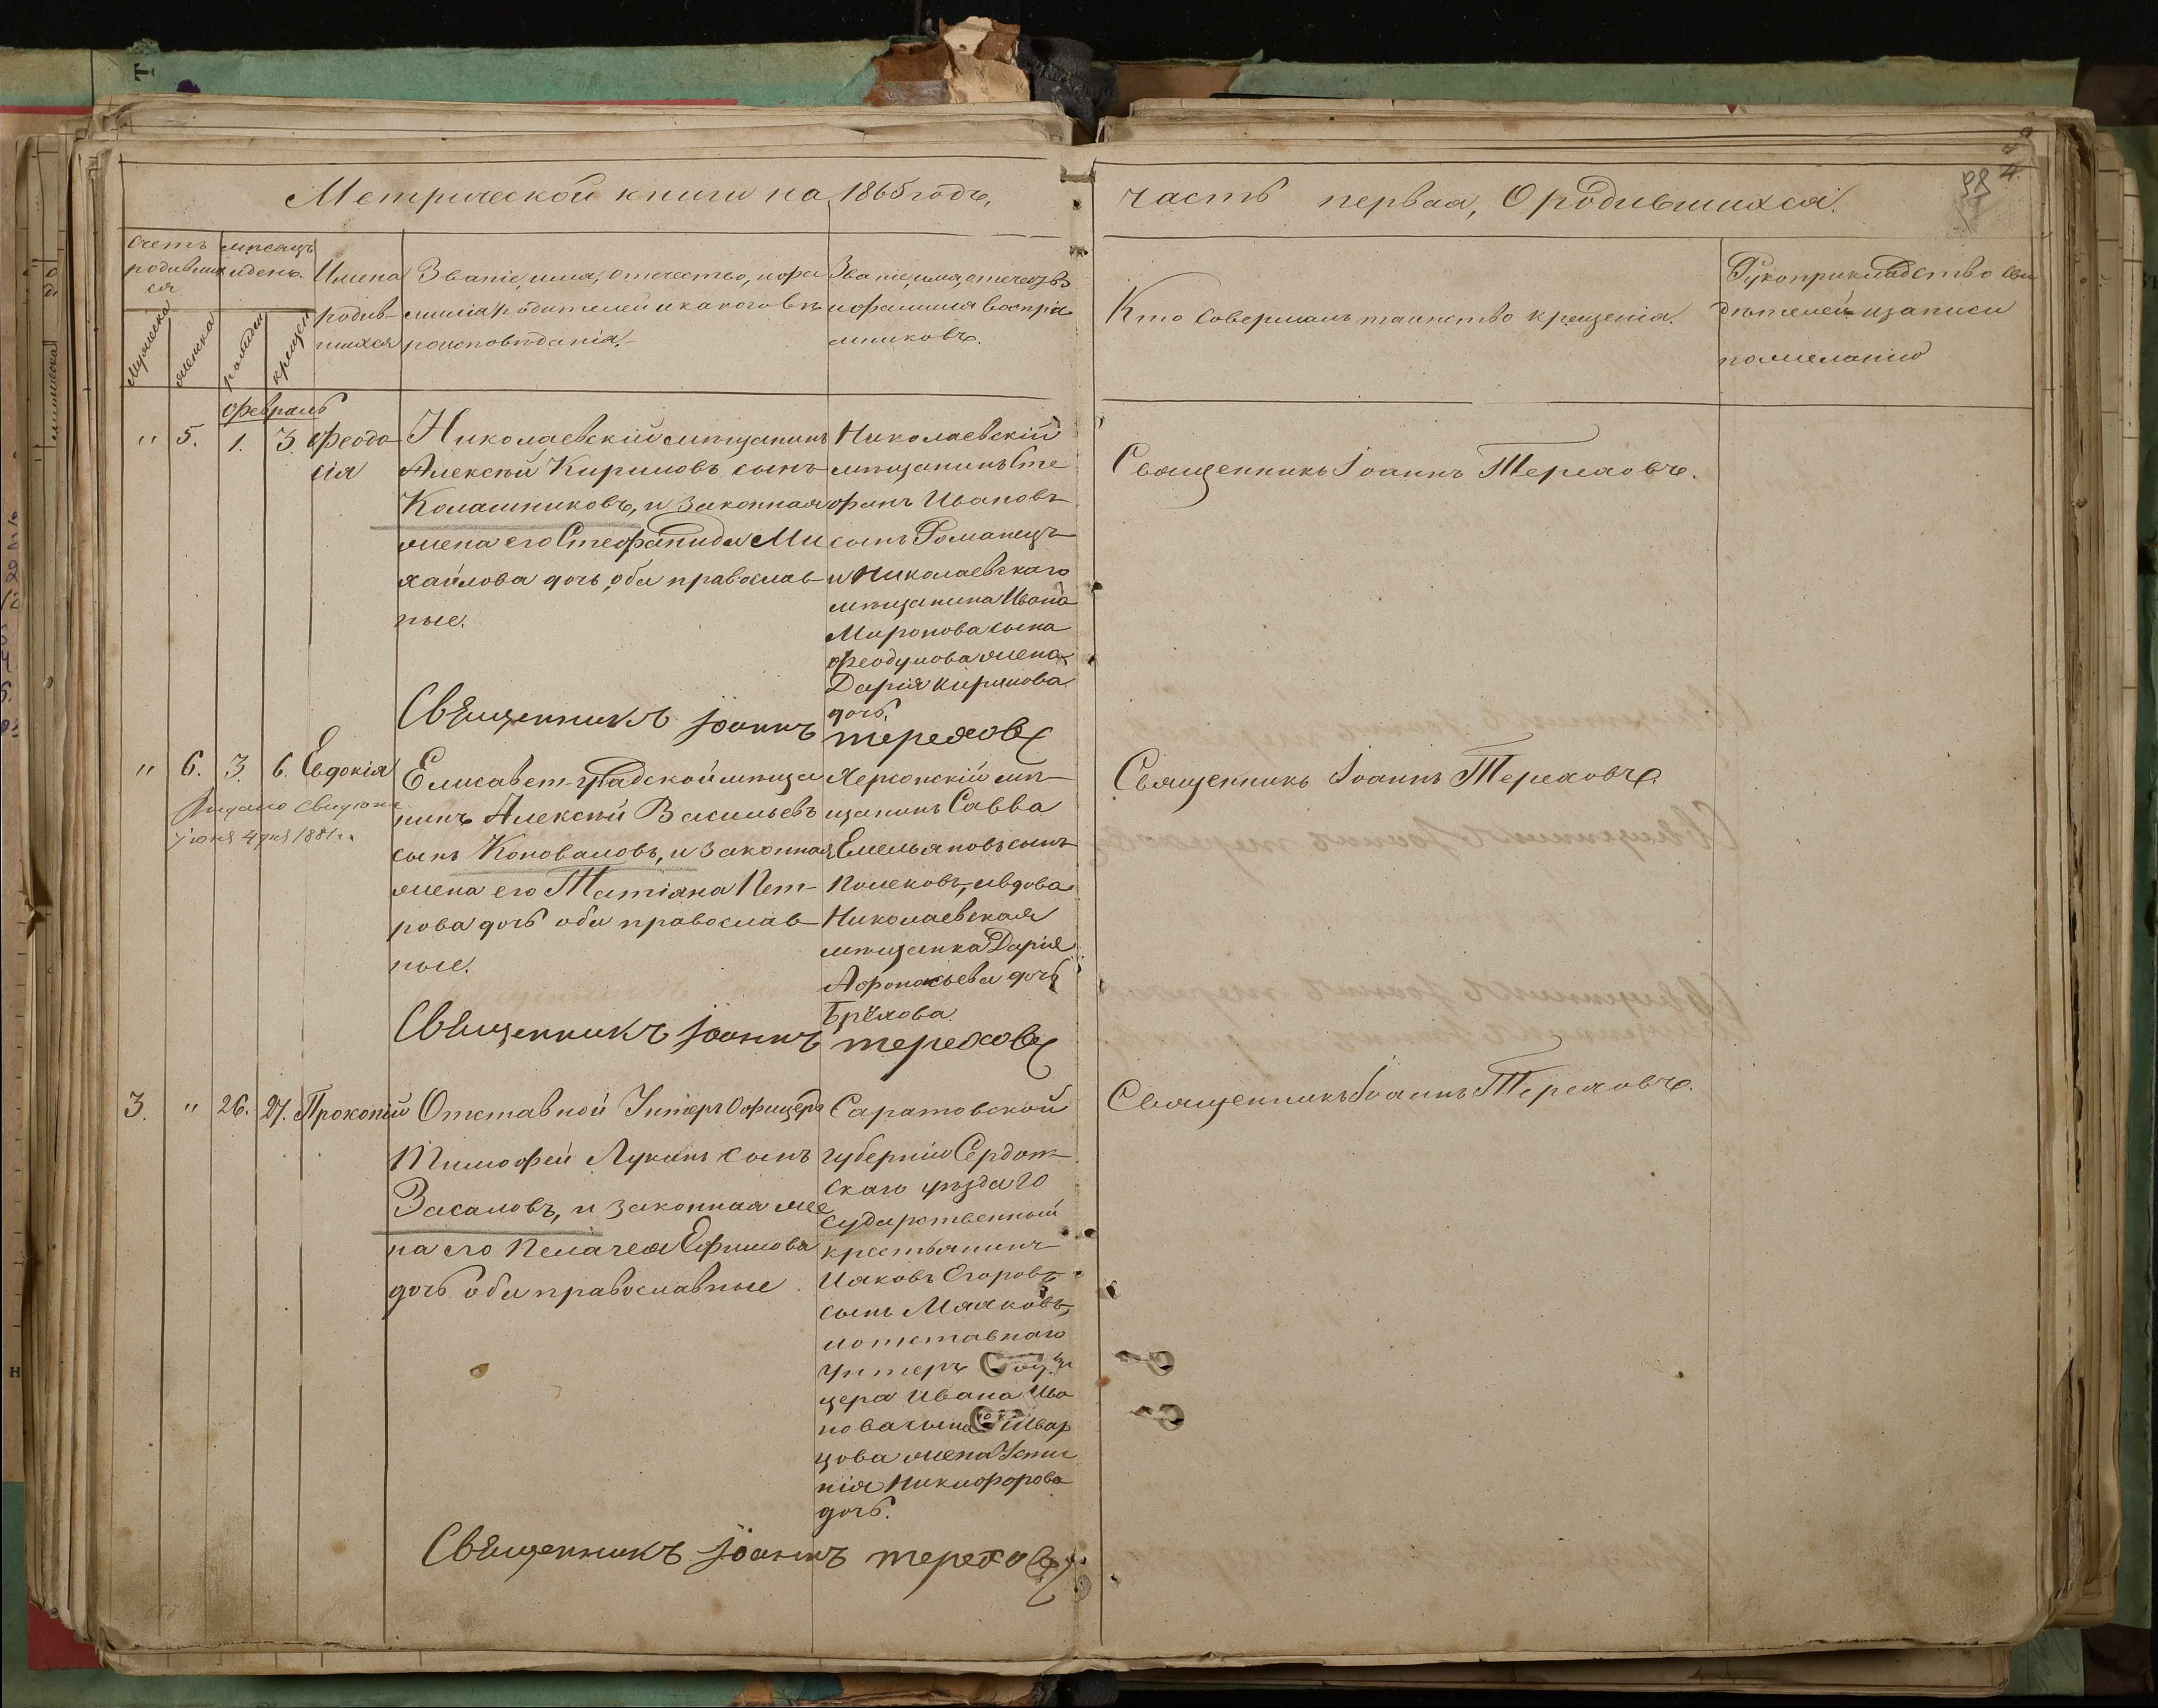 Метрической книги на 1865 годъ,
часть первая, О родившихся.
Счетъ родившихся
мѣсяцъ и день.
Имена родив-
шихся
Званіе, имя, отечество, и фа
милія родителей и какого вѣ
роисповѣданія.
Званіе, имя, отечество
и фамилія воспріе
мниковъ.
Кто совершалъ таинство крещенія.
Рукоприкладство сви
дѣтелей записи
по желанію
мужеска
женска
рожден
крещен
Февраль
" 5. 1. 3. Феодо
сія
Николаевскій мѣщанинъ
Алексѣй Кириловъ сынъ
Колашниковъ, и законная
жена его Стефанида Ми
хайлова дочь, оба православ
ные.
Николаевскій
мѣщанинъ Сте
фанъ Ивановъ
сынъ Романецъ
и Николаевскаго
мѣщанина Ивана
Миронова сына
Феодулова жена
Дарія Кирилова
дочь.
Священникъ Іоаннъ Тереховъ.
Священникъ Іоаннъ Тереховъ
" 6. 3. 6. Евдокія
Выдано свидѣт
іюня 4 дня 1881 г.
Елисавет-градской мѣща
нинъ Алексѣй Васильевъ
сынъ Коноваловъ, и законная
жена его Татіана Пет-
рова дочь оба православ
ные.
Херсонскій мѣ
щанинъ Савва
Емельяновъ сынъ
Полековъ, и вдова
Николаевская
мѣщанка Дарія
Афонасьева дочь
Брѣхова
Священникъ Іоаннъ Тереховъ.
Священникъ Іоаннъ Тереховъ
3. " 26. 27. Прокопій
Отставной Унтеръ Офицеръ
Тимофей Лукинъ сынъ
Засаловъ, и законная же
на его Пелагея Ефимова
дочь оба православные
Саратовской
губерніи Сердоб
скаго уѣзда го
сударственный
крестьянинъ
Иаковъ Егоровъ
сынъ Маяковъ,
и отставнаго
Унтеръ
цера Ивана Ива
нова сына Швар
цова жена Усти
нія Никифорова
дочь.
Священникъ Іоаннъ Тереховъ.
Священникъ Іоаннъ Тереховъ